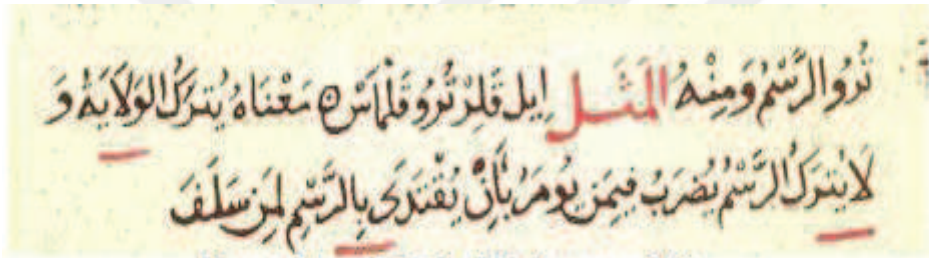 تُرُو الرَّسْمُ وَمِنْهُ المَثَل اِيل قَلِرْ تُرُو قَلْمَاسْ مَعْنَاهُ يُتْرَكُ الوَلَايَةُ وَ
لَا يُتْرَكُ الرَّسْمُ يُضْرَبُ فِيمَن يُومَرُ بِأَنْ يُقْتَدَى بِالرَّسْمِ لِمَن سَلَفَ